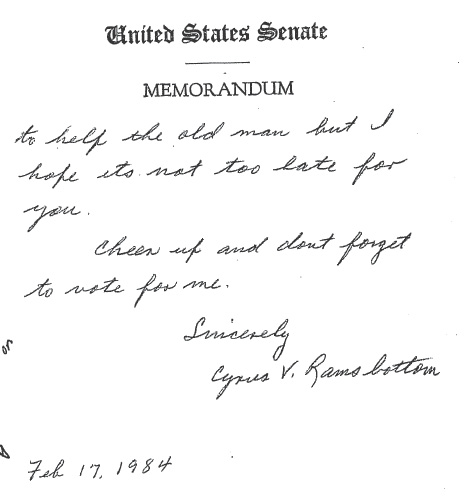 United States Senate
MEMORANDUM
to help the old man but I
hope its not too late for
you.
Cheer up and dont forget
to vote for me.
Sincerely
Cyrus V. Ramsbottom
or
Feb 17, 1984